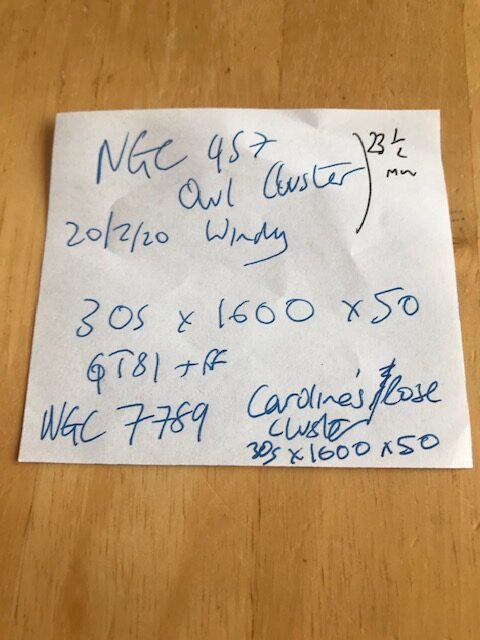 NGC 457
Owl Cluster
23 1/2
20/2/20 Windy
30s x 1600 x 50
GT81 + FF
NGC 7789
Caroline's Rose
cluster
30s x 1600 x 50